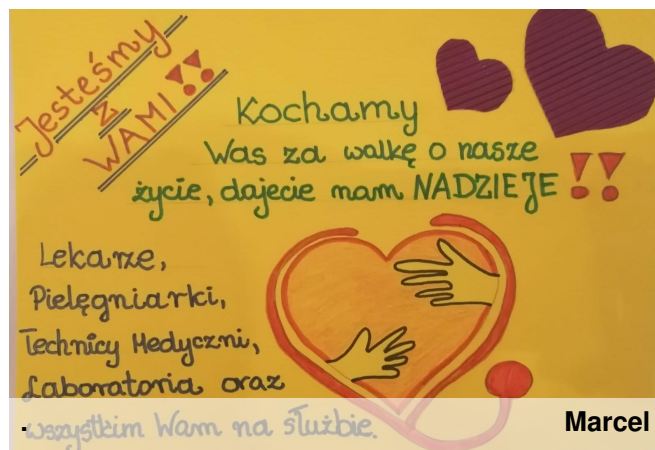 Jesteśmy
z
WAMI!!
Kochamy
Was za walkę o nasze
życie, dajecie nam NADZIEJE!!
Lekarze,
Pielęgniarki,
Technicy Medyczni,
Laboratoria oraz
wszystkim Wam na służbie.
. Marcel